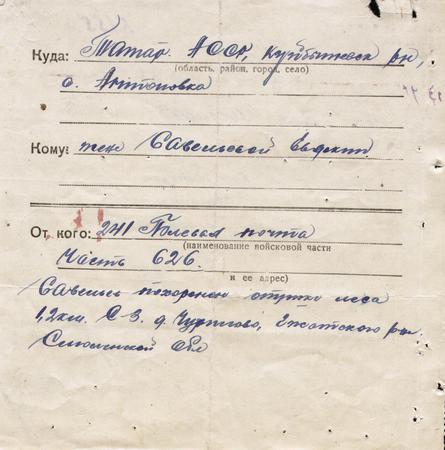 Куда: Татар. АССР, Куйбышевск рн,
(область, район, город, село)
с. Антоновка
Кому: тен Савельевой
От кого: 241 Полевая почта
(наименование войсковой части
Часть 626.
и ее адрес)
Савельев похоронен опушка леса
1,2км. С-З. д. Чурилово, Гжатского рн.
Смоленской обл